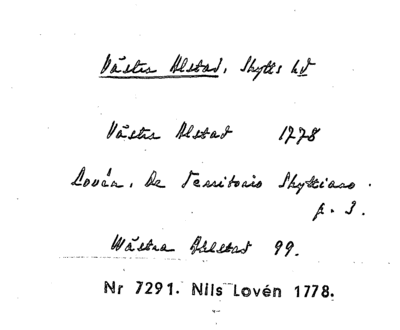 Västra Alstad, Skytts hd
Västra Alstad 1778
Lovén, De Territorio Skyttiano.
p. 3.
Wästra Ahlstad 99.
Nr 7291. Nils Lovén 1778.